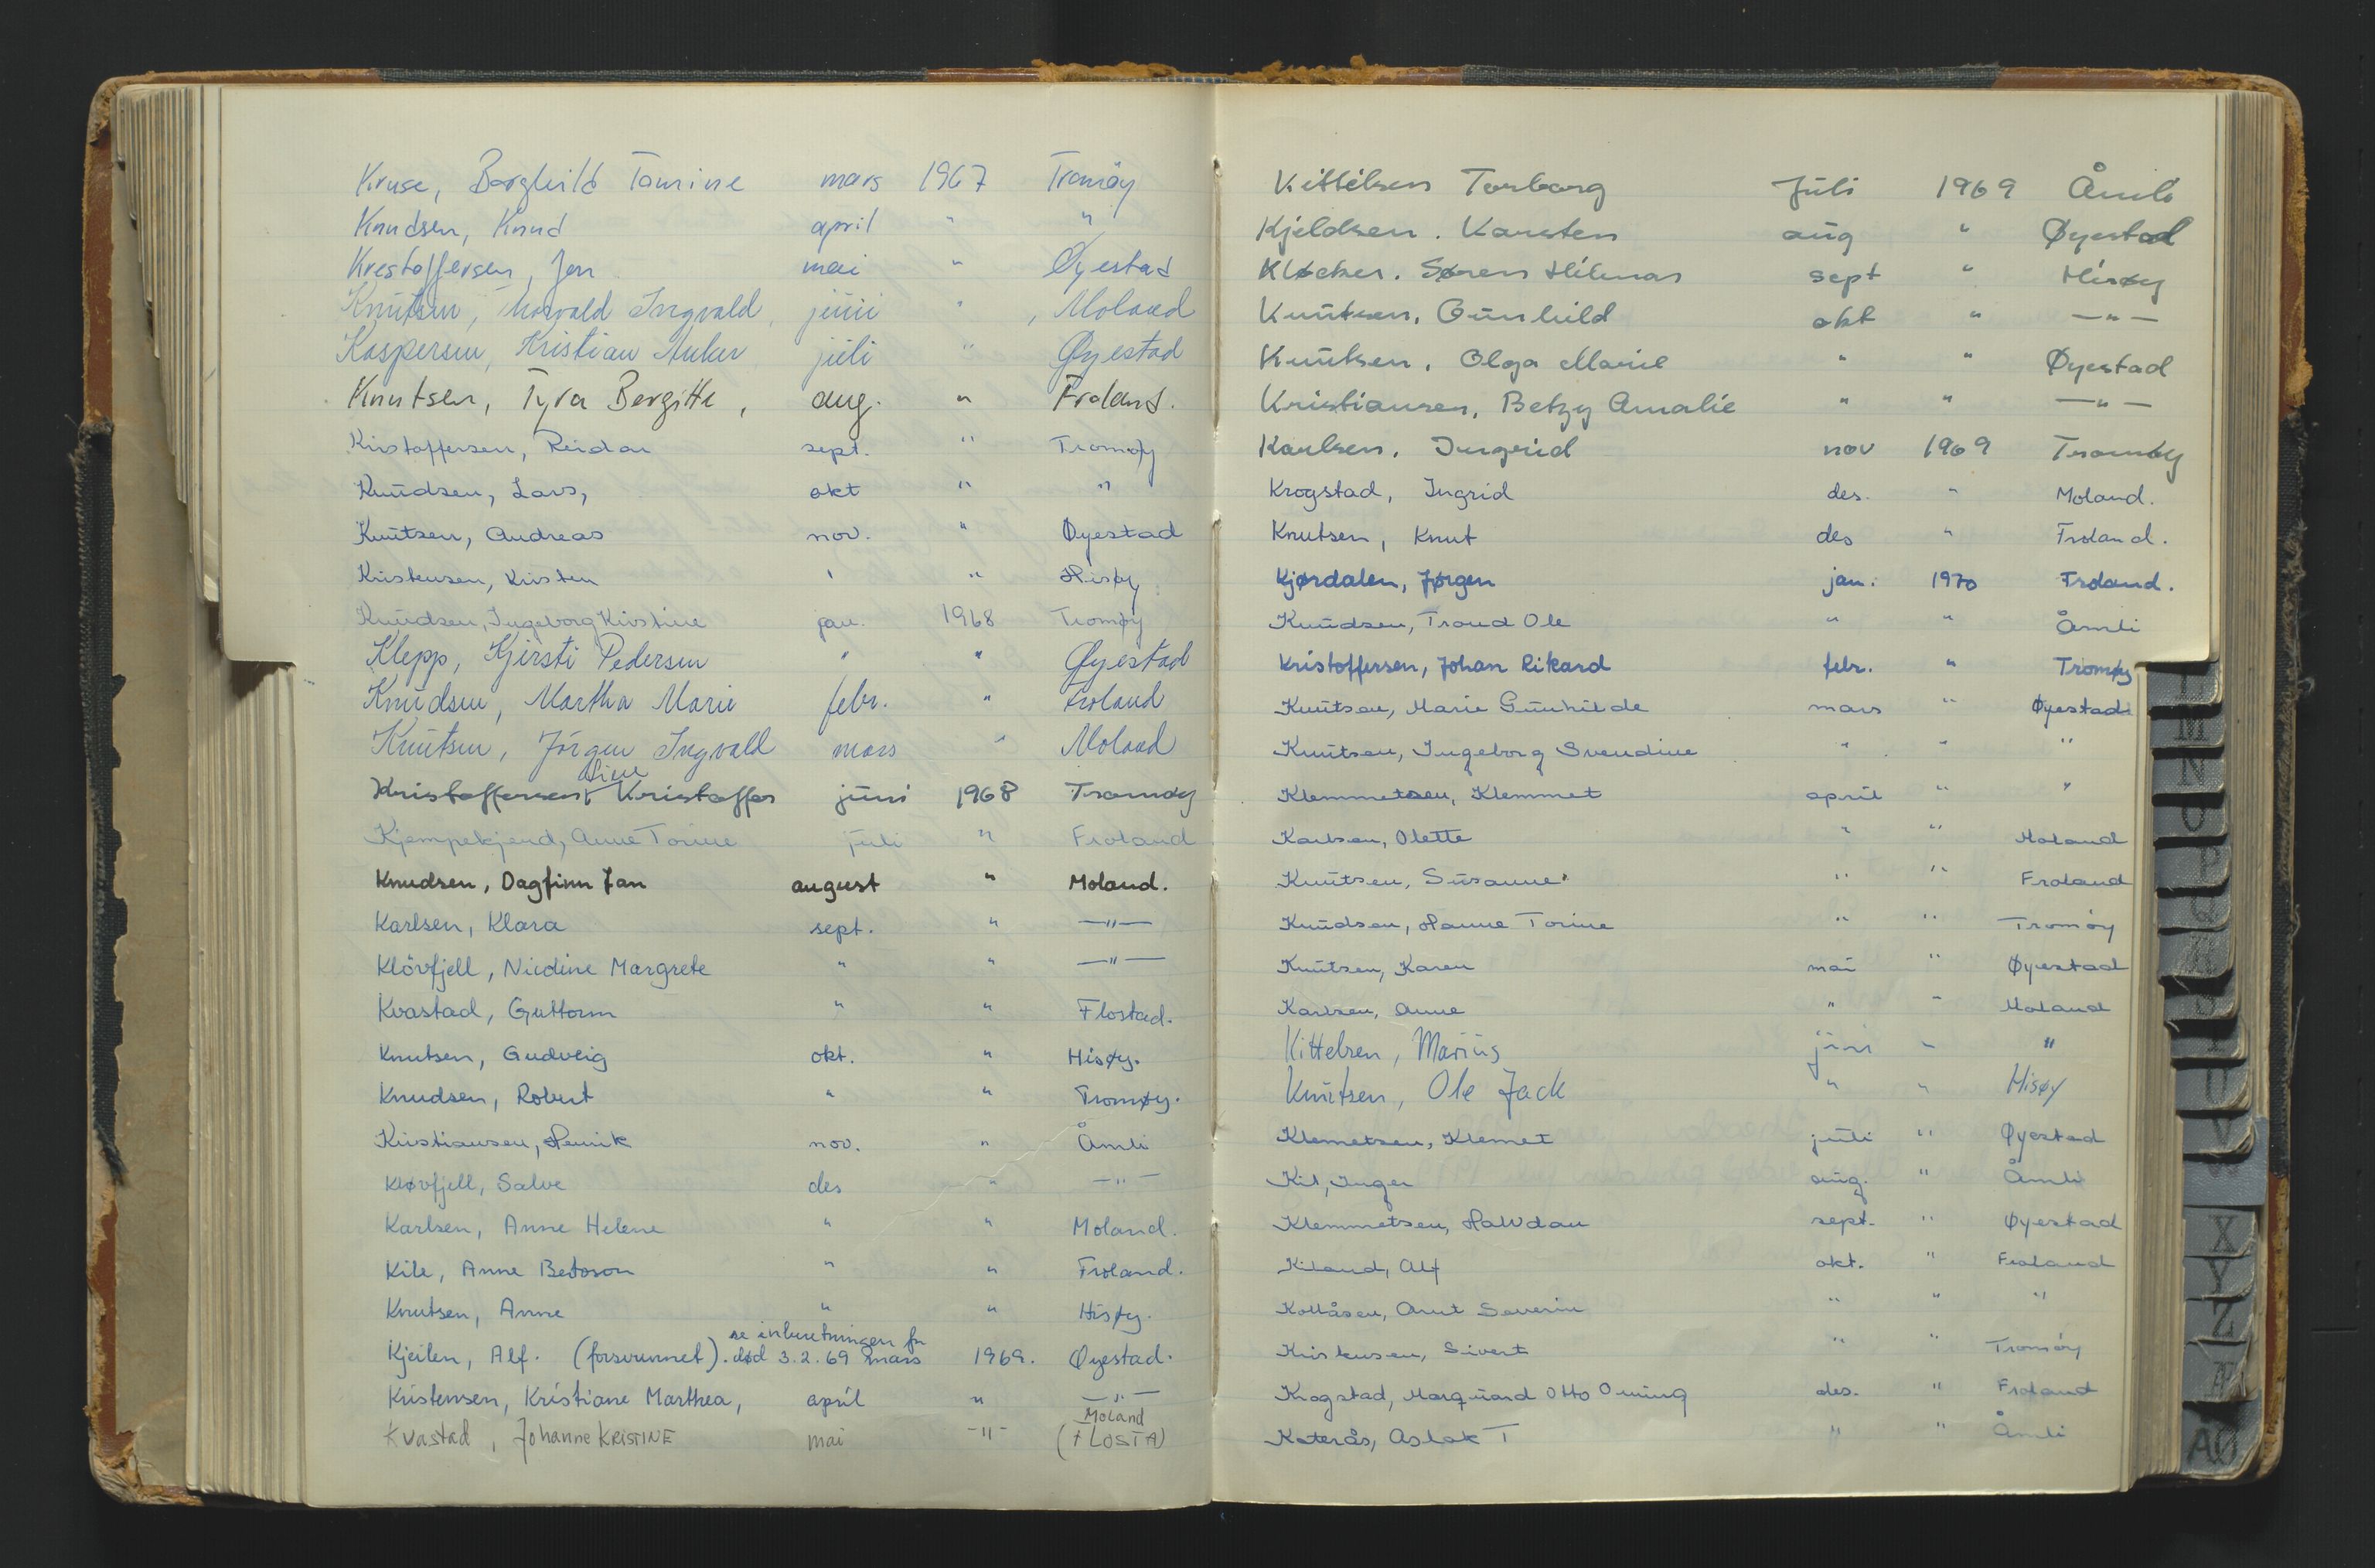 Kruse, Borghild Taurine mars 1967 Tromöy
Knudsen, Knud april " "
Krestoffersen, Jon mai " Øyestad
Knutsen, Thorvald Ingvald, juni " , Moland
Kaspersen, Kristian Anker juli " Øyestad
Knutsen, Tyra Bergitte, aug. " Froland.
Kristoffersen, Reidar sept. " Tromøy
Knudsen, Lars, okt " "
Knutsen, Andreas nov. " Øyestad
Kristensen, Kristen ' " Hisøy
Knudsen, Ingeborg Kirstine jan. 1968 Tromøy
Klepp, Kjersti Pedersen " " Øyestad
Knudsen, Martha Marie febr. " Froland
Knutsen, Jörgen Ingvald mars " Moland
Line
Kristoffersen, Kristoffer juni 1968 Tromøy
Kjempekjend, Anne Torine juli " Froland
Knudsen, Dagfinn Jan august " Moland.
Karlsen, Klara sept. " —"—
Klövfjell, Nicdine Margrete " " —"—
Kvastad, Guttorm " " Flostad.
Knutsen, Gudveig okt. " Hisøy.
Knudsen, Robert " " Tromøy.
Kristiansen, Henrik nov. " Åmli
Kløvfjell, Salve des " —"—
Karlsen, Anne Helene " " Moland.
Kile, Anne " " Froland.
Knutsen, Anne " " Hisøy.
se inberetningen for
Kjeilen, Alf. (forsvunnet). død 3.2.69 mars 1969. Øyestad.
Kristensen, Kristiane Marthea, april " —"—
Moland
Kvastad, Johanne KRISTINE mai -"- (FLOSTA)
Kittilsen Torborg Juli 1969 Åmli
Kjeldsen. Karsten aug " Øyestad
Kløcker. Søren Hilmar sept " Hisøy
Knutsen. Gunhild okt " —"—
Knutsen. Olga Marie " " Øyestad
Kristiansen, Betzy Amalie " " —"—
Karlsen. Ingrid nov 1969 Tromøy
Krogstad, Ingrid des. " Moland.
Knutsen, Knut des " Froland.
Kjørdalen, Jørgen jan. 1970 Froland.
Knudsen, Trond Ole " " Åmli
Kristoffersen, Johan Rikard febr. " Tromøy
Knutsen, Marie Gunhilde mars " Øyestad
Knutsen, Ingeborg Svendine " " "
Klemmetsen, Klemmet april " "
Karlsen, Olette " " Moland
Knutsen, Susanne " " Froland
Knudsen, Hanne Torine " " Tromöy
Knutsen, Karen mai " Øyestad
Karlsen, Anne " " Moland
Kittelsen, Marius juni " "
Knutsen, Ole Jack " " Hisøy
Klemetsen, Klemet juli " Øyestad
Kil, Inger aug. " Åmli
Klemmetsen, Halvdan sept. " Øyestad
Kiland, Alf okt. " Froland
Kollåsen, Arnt Severin " " "
Kristensen, Sivert " " Tromöy
Krogstad, Marquard Otto Oming des. " Froland
Katerås, Aslak T " " Åmli
M
N
O
P
Q
R
U
V
X
Y
Z
Æ
AØ